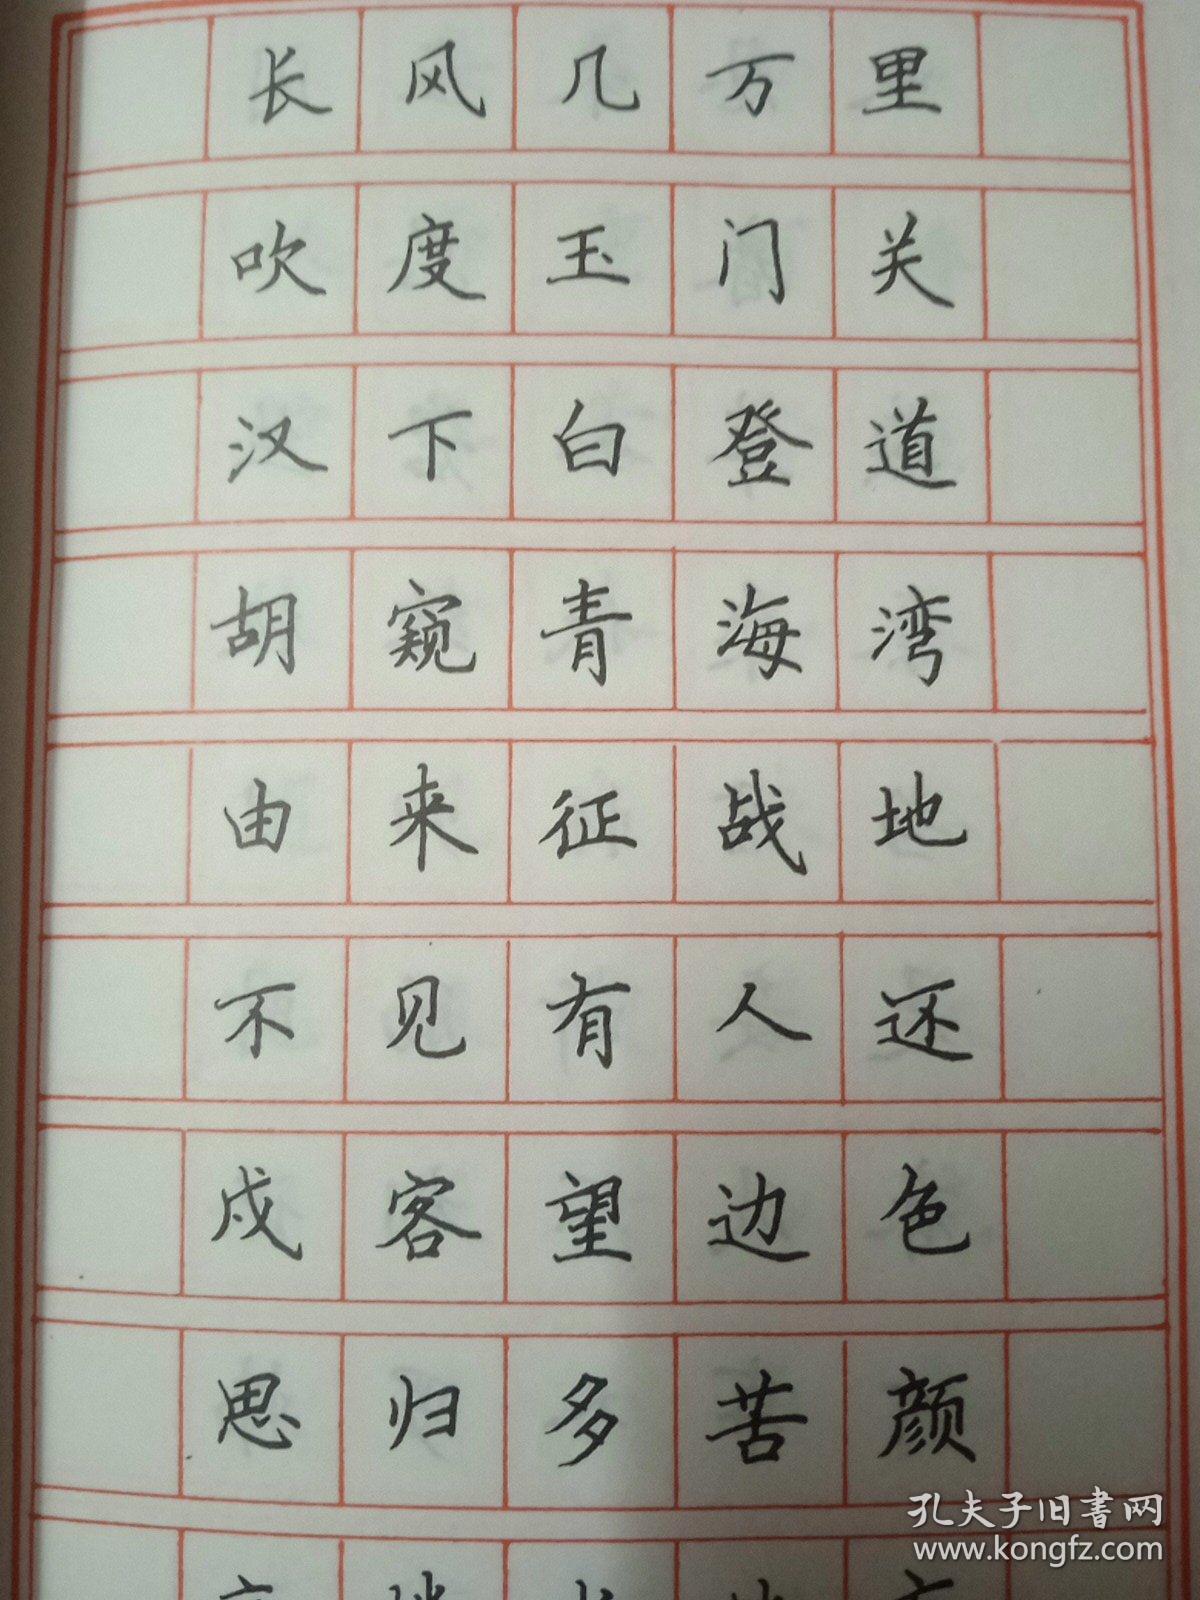 长风几万里
吹度玉门关
汉下白登道
胡窥青海湾
由来征战地
不见有人还
戍客望边色
思归多苦颜
孔夫子旧書网
www.kongfz.com